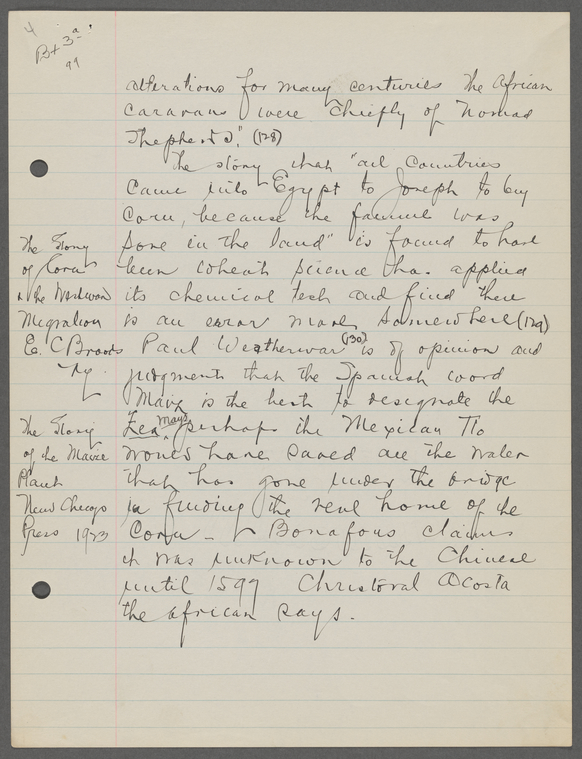 4
Bx 3a
99
alterations for many centuries the African
caravans were chiefly of nomad
Shepherds". (128)
The story that "all countries
came into Egypt to Joseph to buy
Corn, because the famine was
sore in the land" is found to have
been wheat science has applied
its chemical tests and find there
is an error made somewhere (129)
Paul Weatherwax (130) is of opinion and
judgments that the Spanish word
Maiz is the best to designate the
Zea mays perhaps the Mexican Tlo
would have saved all the water
that has gone under the bridge
in finding the real home of the
Corn - Bonafous claims
it was unknown to the Chinese
until 1599 Christoval Acosta
the African says.
The Story
of Corn
& the Westward
Migration
E. C Brooks
Ny.
The Story
of the Maize
Plant
New Chicago
Press 1923